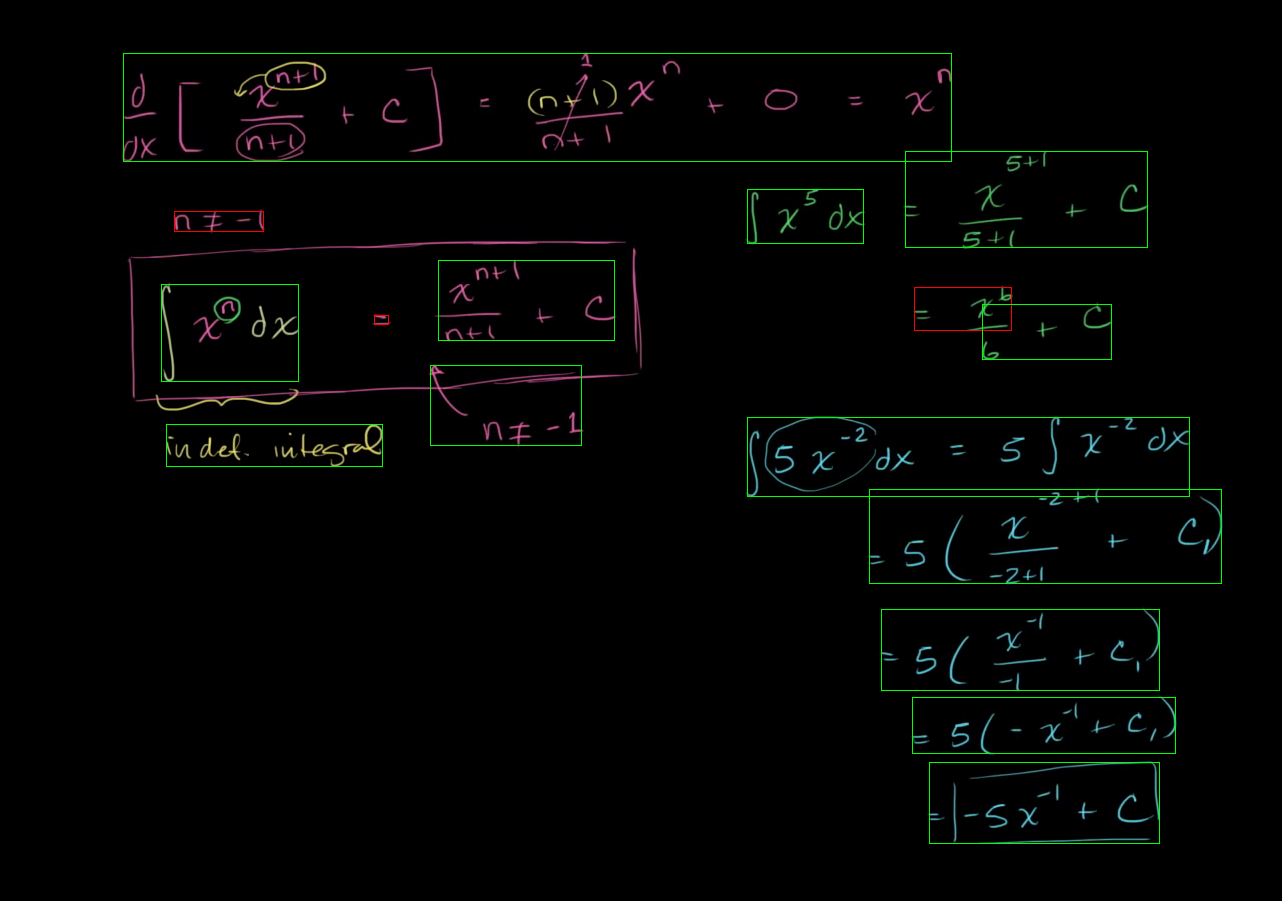 d/dx [ x^(n+1)/(n+1) + C ] = (n+1)/(n+1) x^n + 0 = x^n
1
n ≠ -1
∫ x^n dx = x^(n+1)/(n+1) + C
n ≠ -1
indef. integral
∫ x^5 dx = x^(5+1)/(5+1) + C
= x^6/6 + C
∫ 5x^-2 dx = 5 ∫ x^-2 dx
= 5 ( x^(-2+1)/(-2+1) + C₁ )
= 5 ( x^-1/-1 + C₁ )
= 5 ( -x^-1 + C₁ )
= -5x^-1 + C